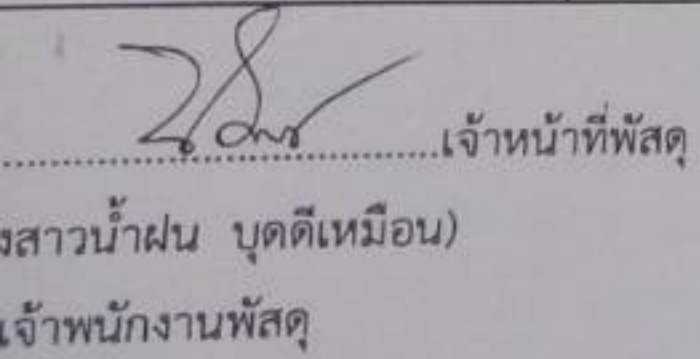 เจ้าหน้าที่พัสดุ
งสาวน้ำฝน บุดดีเหมือน)
เจ้าพนักงานพัสดุ